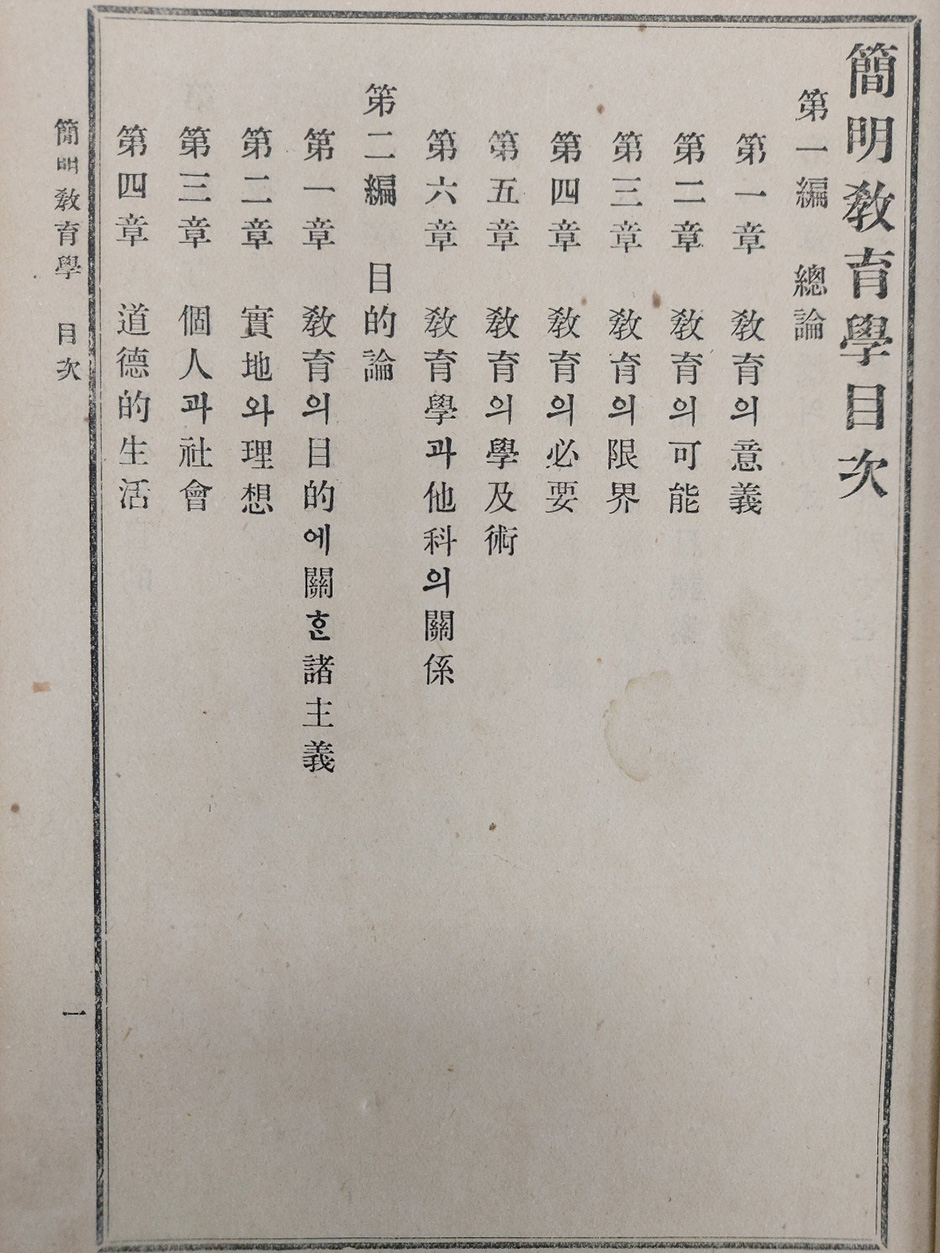 簡明敎育學目次
第一編 總論
第一章 敎育의意義
第二章 敎育의可能
第三章 敎育의限界
第四章 敎育의必要
第五章 敎育의學及術
第六章 敎育學과他科의關係
第二編 目的論
第一章 敎育의目的에關ᄒᆞᆫ諸主義
第二章 實地와理想
第三章 個人과社會
第四章 道德的生活
簡明敎育學 目次
一